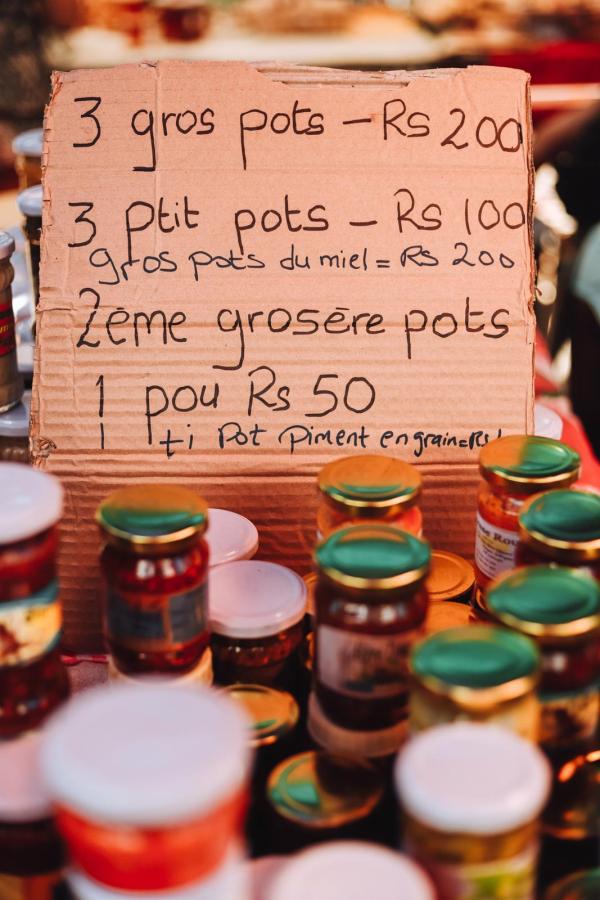 3 gros pots - Rs 200
3 ptit pots - Rs 100
gros pots du miel = Rs 200
2ēme grosēre pots
1 pou Rs 50
1 ti Pot Piment en grain=Rs